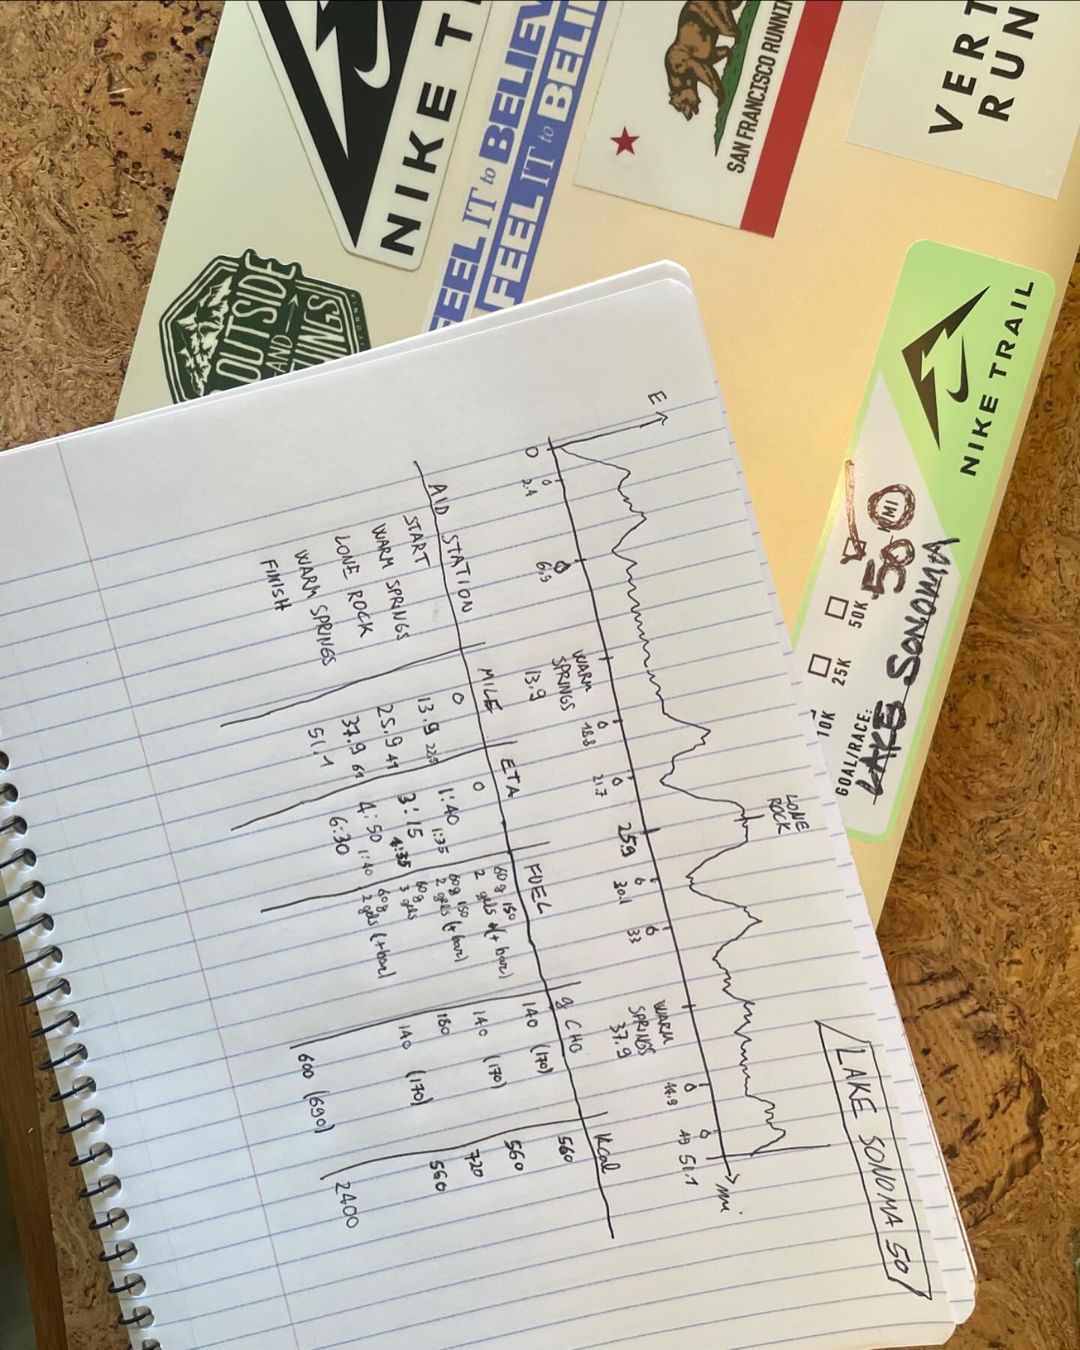 NIKE T
FEEL IT to BELIEV
FEEL IT to BELI
SAN FRANCISCO RUNNI
VERT
RUN
OUTSIDE
AND
NIKE TRAIL
50 MI
50K
25K
10K
GOAL/RACE:
LAKE SONOMA
LAKE SONOMA 50
E
LONE
ROCK
0 2.4 6.9 WARM SPRINGS 13.9 18.8 21.7 25.9 30.1 33 WARM SPRINGS 37.9 44.9 49 51.1 mi
AID STATION MILE ETA FUEL g CHO Kcal
START 0 0 60g 150 2 gels (+ bar) 140 (170) 560
WARM SPRINGS 13.9 22.5 1:40 1:35 60g 150 2 gels (+ bar) 140 (170) 560
LONE ROCK 25.9 41 3:15 60g 3 gels 180 720
WARM SPRINGS 37.9 61 4:50 1:40 60g 2 gels (+bar) 140 (170) 560
FINISH 51.1 6:30 600 (690) 2400